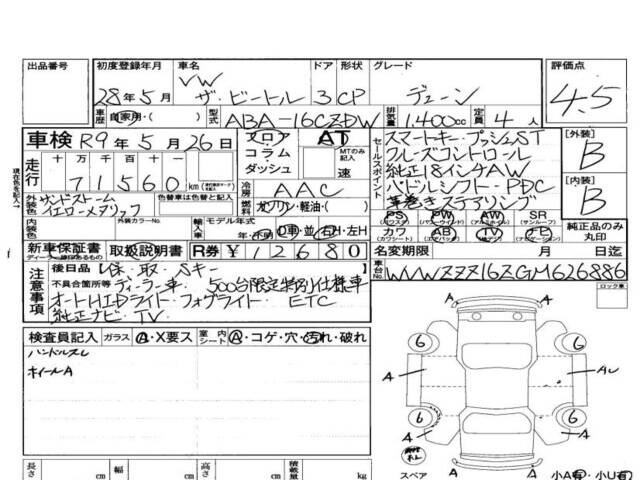 出品番号 初度登録年月 車名 ドア 形状 グレード 評価点
VW
28年5月 ザ・ビートル 3 CP デューン 4.5
車歴 自家用・( ) 型式 ABA-16CZDW 排気量 1,400cc 定員 4人
車検 R9年5月26日 フロア コラム ダッシュ AT MTのみ記入 速
走行 十万 万 千 百 十 一
71560 km
セールスポイント
スマートキー・プッシュST
クルーズコントロール
純正18インチAW
パドルシフト・PDC
革巻きステアリング
[外装] B
[内装] B
現在色を記入→
外装色 サンドストーム
イエローメタリック
色替車は色替と記入
冷房 AAC
燃料 ガソリン・軽油・( )
内装色 外装カラーNo. 輸入車 モデル年式 年・不明 D車・並 右H・左H
PS PW AW SR
(パワステ) (パワーウインド) (アルミホイール) (サンルーフ)
カワ AB TV ナビ
(カワシート) (エアバッグ) (テレビ) (ナビゲーション)
純正品のみ丸印
新車保証書 取扱説明書 R券 ¥12680
名変期限 月 日迄
車台No. WVWZZZ16ZGM626886
注意事項
後日品 保・取・Sキー
不具合箇所等 ディーラー車 500台限定特別仕様車
オートHIDライト・フォグライト・ETC
純正ナビ・TV
ロック車
検査員記入 ガラス A・X要ス 室内シート A・コゲ・穴・汚れ・破れ
ハンドルスレ
ホイールA
6 A 6
A A
6 A A 6
長さ cm 幅 cm 高さ cm 積載量 kg
スペア 小A有・小U有